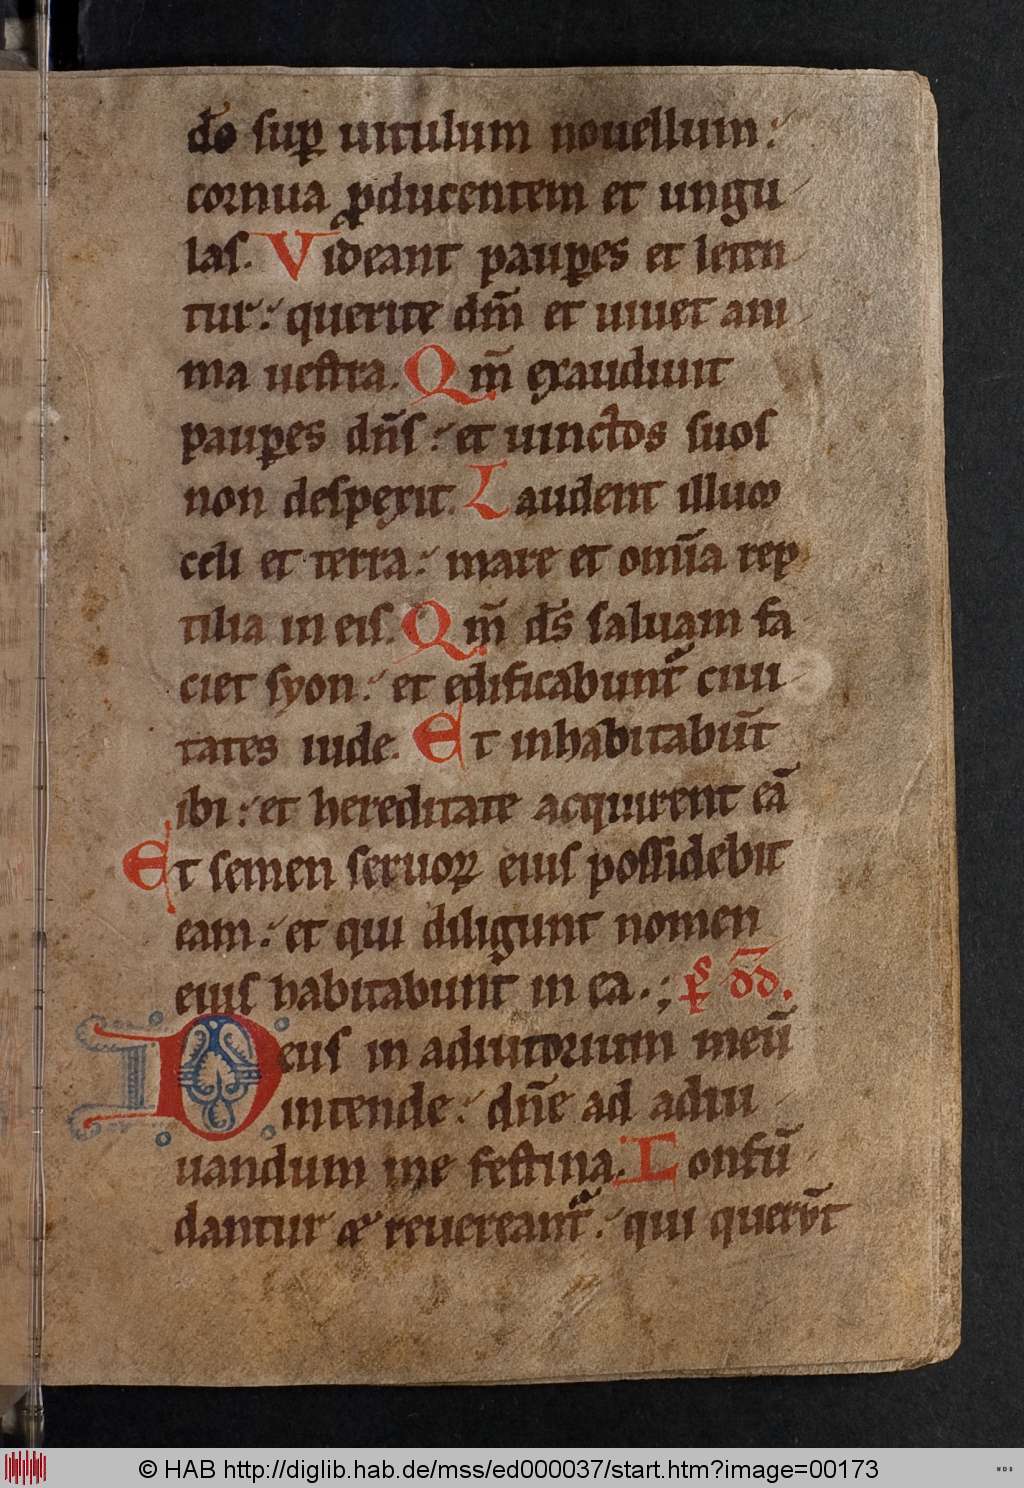 d̄o sup̱ uitulum nouellum:
cornua ꝓducentem et ungu
las. Videant paup̱es et leten
tur: querite dn̄m et uiuet ani
ma uestra. Qm̄ exaudiuit
paup̱es dn̄s: et uinctos suos
non despexit. Laudent illum
celi et terra: mare et omīa rep
tilia in eis. Qm̄ ds̄ saluam fa
ciet syon: et edificabunt᷑ ciui
tates iude. Et inhabitabūt
ibi: et hereditate acquirent eā
Et semen seruoꝝ eius possidebit
eam: et qui diligunt nomen
eius habitabunt in ea.; p̄s dd̄.
Deus in adiutorium meū
intende: dn̄e ad adiu
uandum me festina. Confū
dantur et reuereant᷑: qui querūt
© HAB http://diglib.hab.de/mss/ed000037/start.htm?image=00173